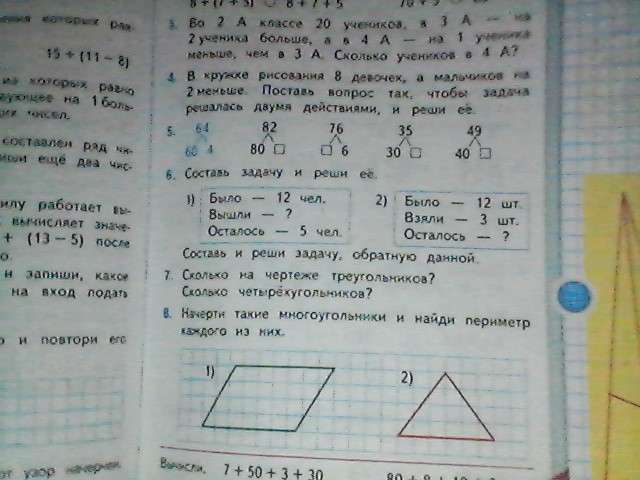 15 + (11 – 8)
из которых равно
на 1 боль-
составлен ряд чи-
ещё два чис-
работает вы-
вычисляет значе-
+ (13 – 5) после
и запиши, какое
на вход подать
и повтори его
узор начерчен
8 + 7 + 5
3. Во 2 А классе 20 учеников, в 3 А — на
2 ученика больше, а в 4 А — на 1 ученика
меньше, чем в 3 А. Сколько учеников в 4 А?
4. В кружке рисования 8 девочек, а мальчиков на
2 меньше. Поставь вопрос так, чтобы задача
решалась двумя действиями, и реши её.
5. 64 82 76 35 49
60 4 80 □ □ 6 30 □ 40 □
6. Составь задачу и реши её.
1) Было — 12 чел.
Вышли — ?
Осталось — 5 чел.
2) Было — 12 шт.
Взяли — 3 шт.
Осталось — ?
Составь и реши задачу, обратную данной.
7. Сколько на чертеже треугольников?
Сколько четырёхугольников?
8. Начерти такие многоугольники и найди периметр
каждого из них.
1) 2)
Вычисли. 7 + 50 + 3 + 30